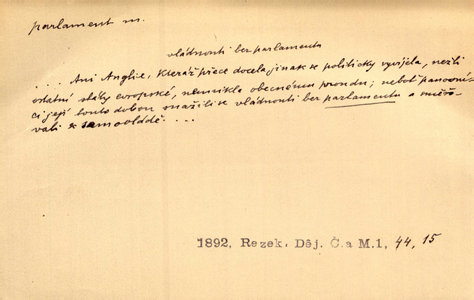 parlament m.
vládnouti bez parlamentu
.... Ani Anglie, kteráž přece docela jinak se politicky vyvíjela, nežli
ostatní státy evropské, neunikla obecnému proudu; neboť panovní-
ci její touto dobou snažili se vládnouti bez parlamentu a směřo-
vali k samovládě. ...
1892, Rezek, Děj. Č. a M.1, 44, 15